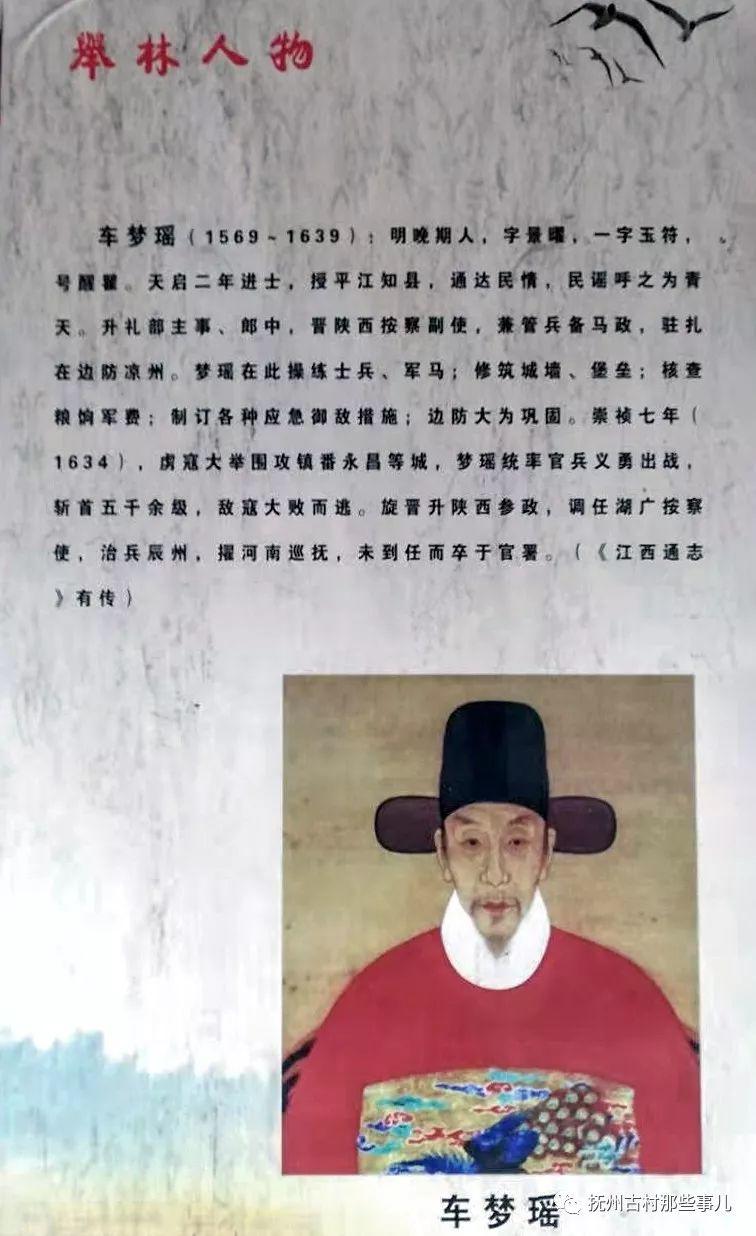 举林人物
车梦瑶(1569~1639):明晚期人,字景曜,一字玉符,
号醒瞿。天启二年进士,授平江知县,通达民情,民谣呼之为青
天。升礼部主事、郎中,晋陕西按察副使,兼管兵备马政,驻扎
在边防凉州。梦瑶在此操练士兵、军马;修筑城墙、堡垒;核查
粮饷军费;制订各种应急御敌措施;边防大为巩固。崇祯七年(
1634),虏寇大举围攻镇番永昌等城,梦瑶统率官兵义勇出战,
斩首五千余级,敌寇大败而逃。旋晋升陕西参政,调任湖广按察
使,治兵辰州,擢河南巡抚,未到任而卒于官署。(《江西通志
》有传)
车梦瑶
抚州古村那些事儿